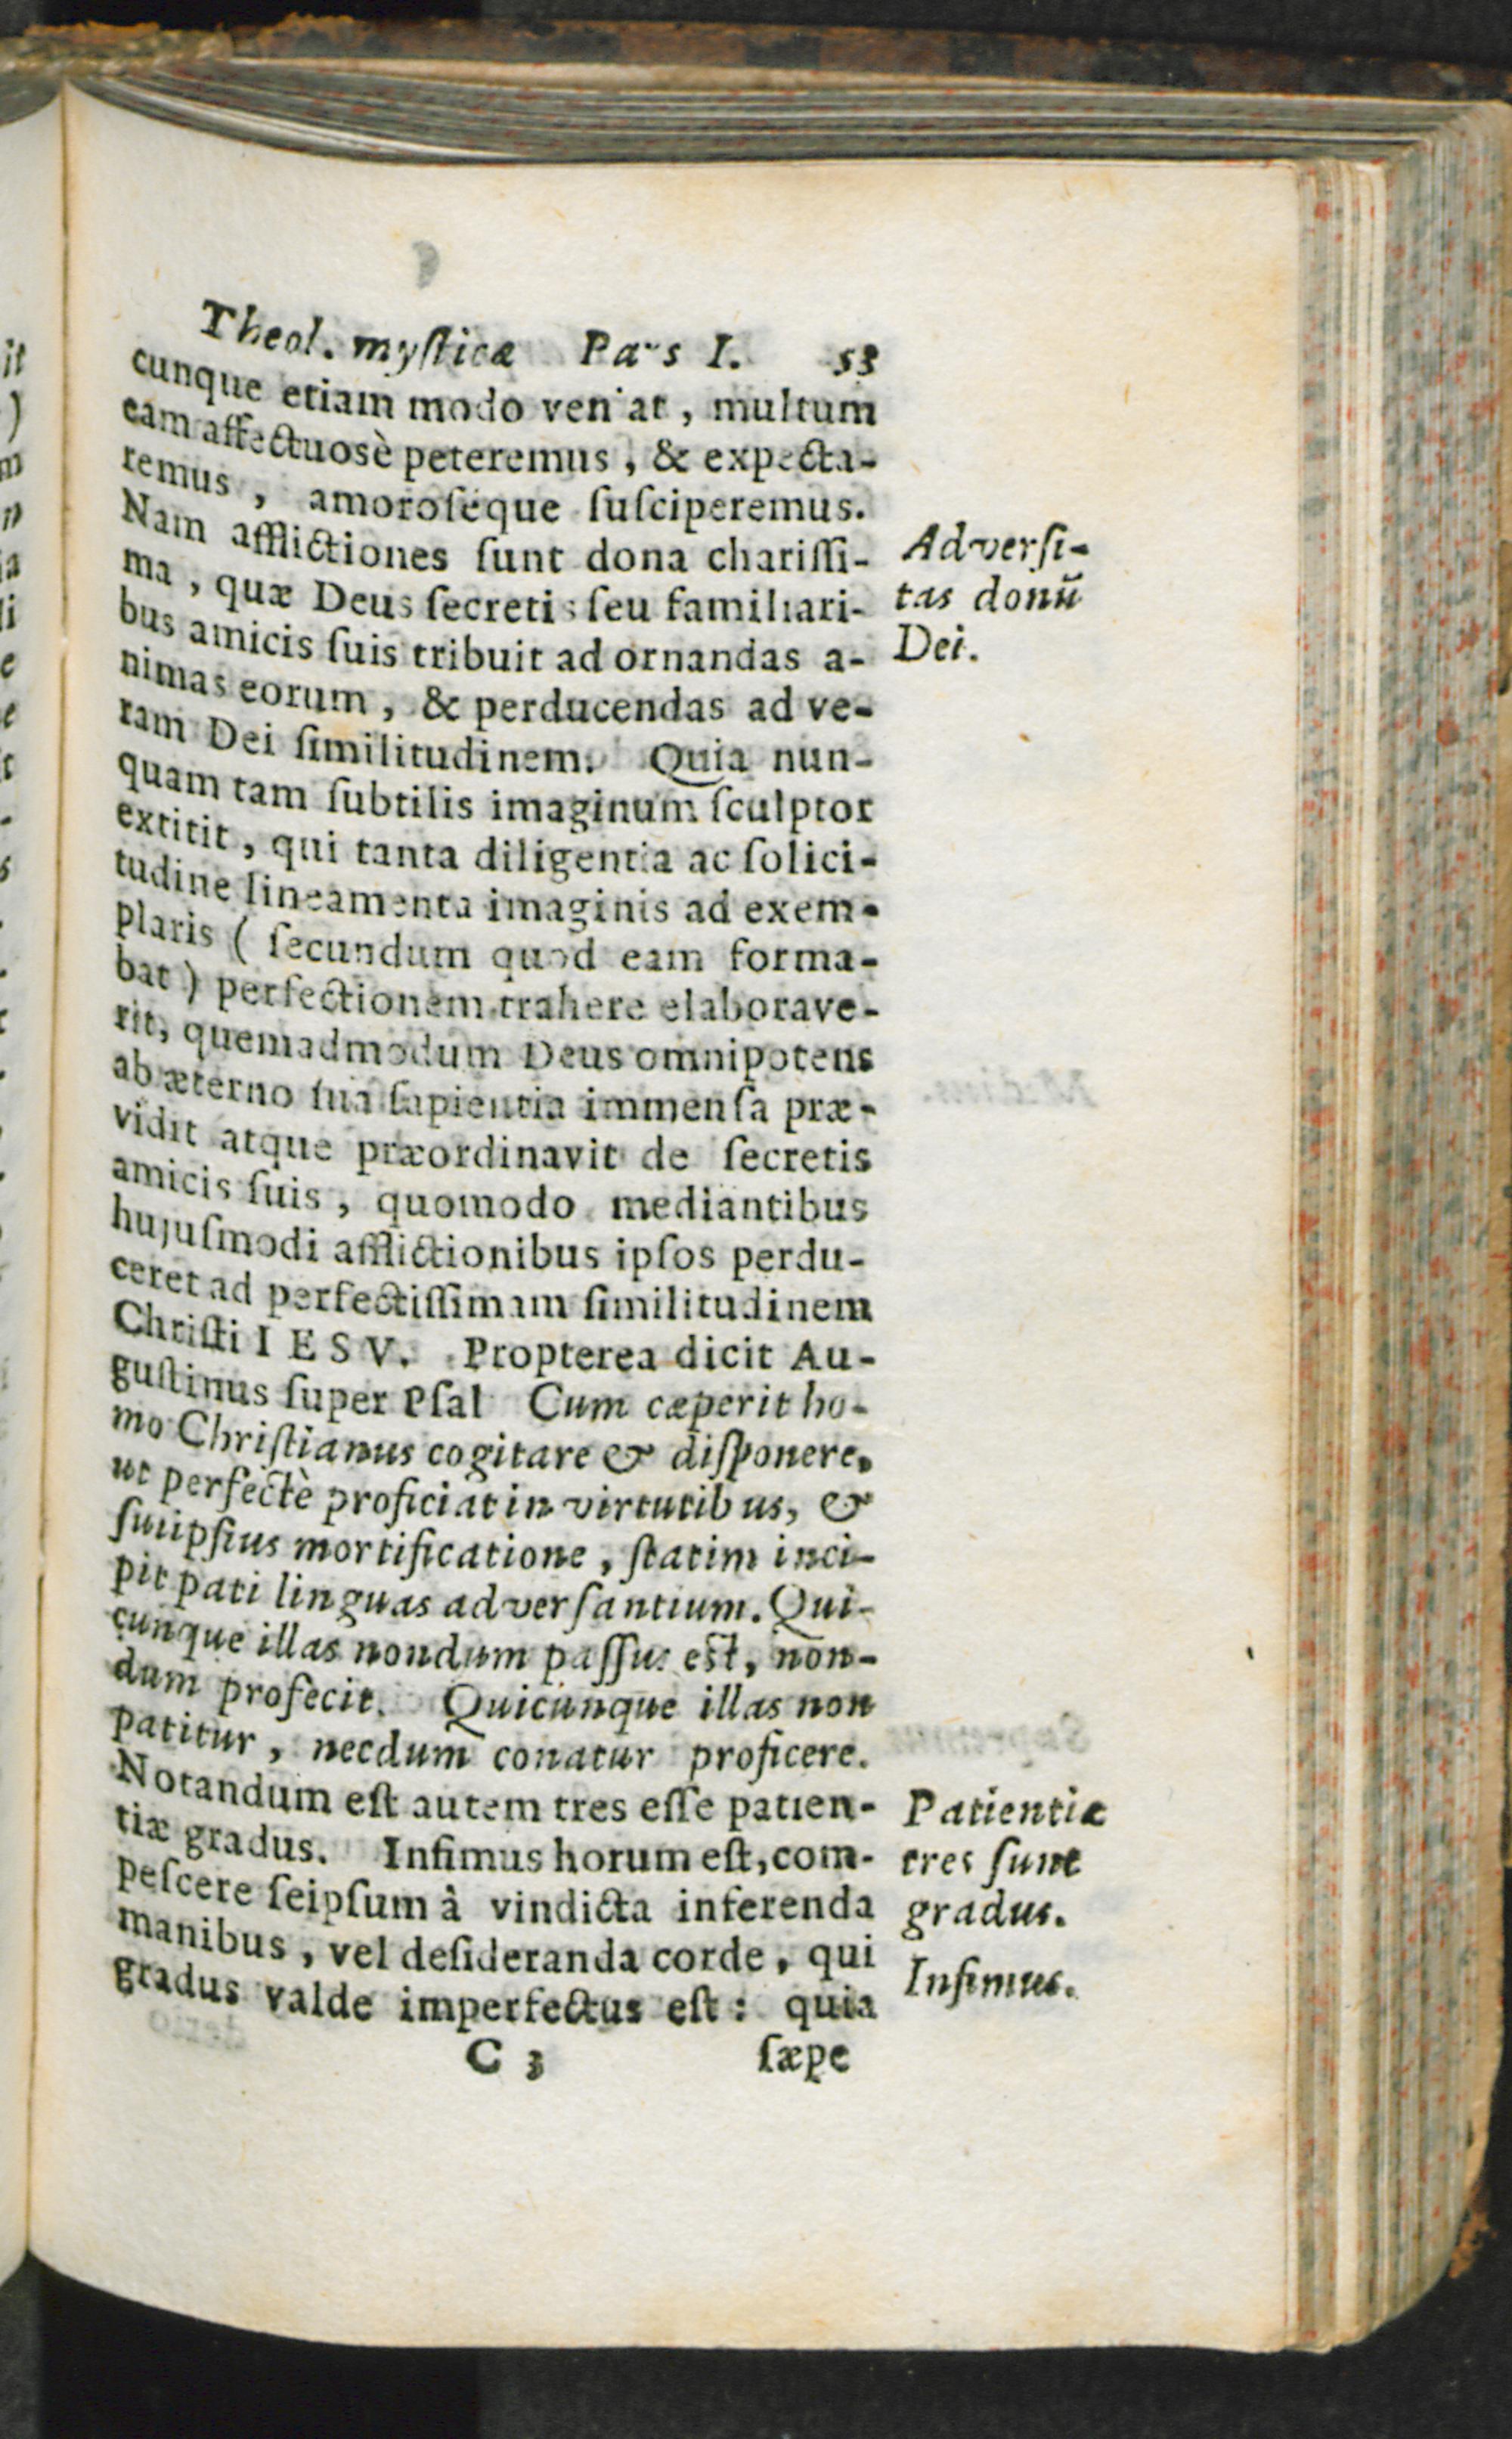 Theol. mysticæ Pars I. 53
cunque etiam modo veniat, multum
eam affectuosè peteremus, & expecta-
remus, amoroséque ſuſciperemus.
Nam afflictiones ſunt dona chariſſi-
ma, quæ Deus ſecretis ſeu familiari-
bus amicis ſuis tribuit ad ornandas a-
nimas eorum, & perducendas ad ve-
ram Dei ſimilitudinem. Quia nun-
quam tam ſubtilis imaginum ſculptor
extitit, qui tanta diligentia ac ſolici-
tudine lineamenta imaginis ad exem-
plaris (ſecundum quod eam forma-
bat) perfectionem trahere elaborave-
rit, quemadmodum Deus omnipotens
ab æterno ſua ſapientia immenſa præ-
vidit atque præordinavit de ſecretis
amicis ſuis, quomodo mediantibus
hujuſmodi afflictionibus ipſos perdu-
ceret ad perfectiſſimam ſimilitudinem
Chriſti IESV. Propterea dicit Au-
guſtinus ſuper Pſal Cum cæperit ho-
mo Chriſtianus cogitare & diſponere,
ut perfectè proficiat in virtutibus, &
ſuiipſius mortificatione, ſtatim inci-
pit pati linguas adverſantium. Qui-
cunque illas nondum paſſus eſt, non-
dum profecit. Quicunque illas non
patitur, necdum conatur proficere.
Notandum eſt autem tres eſſe patien-
tiæ gradus. Infimus horum eſt, com-
peſcere ſeipſum â vindicta inferenda
manibus, vel deſideranda corde, qui
gradus valde imperfectus eſt: quia
C 3 ſæpe
Adverſi-
tas donũ
Dei.
Patientiæ
tres ſunt
gradus.
Infimus.